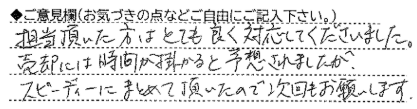 ◆ご意見欄(お気づきの点などご自由にご記入下さい。)
担当頂いた方はとても良く対応してくださいました。
売却には時間が掛かると予想されましたが、
スピーディーにまとめて頂いたので次回もお願いします。